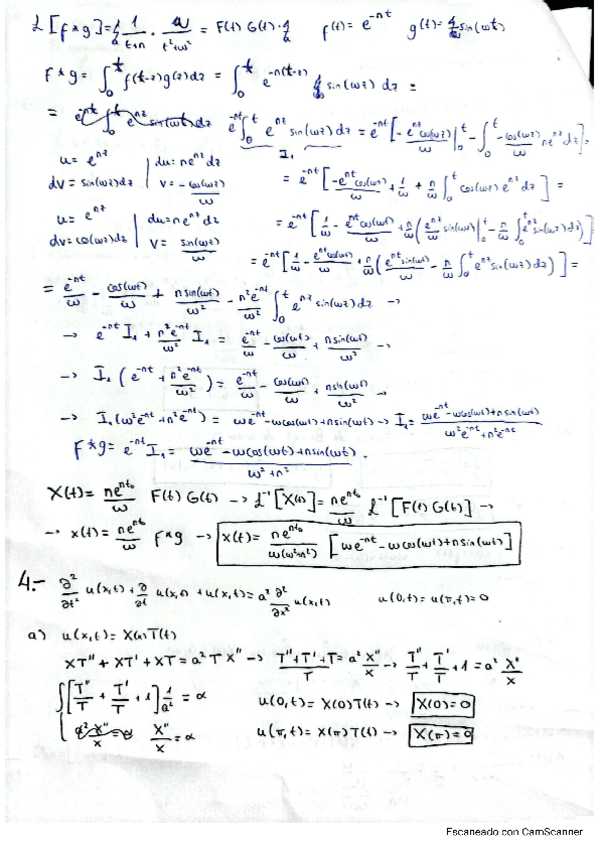 L[f*g] = 1/(t+n) · ω/(t²+ω²) = F(t) G(t) · f(t) = e^{-nt} g(t) = sin(ωt)
F*g = ∫₀ᵗ f(t-z)g(z)dz = ∫₀ᵗ e^{-n(t-z)} sin(ωz) dz =
= e^{-nt}∫₀ᵗ e^{nz} sin(ωz) dz = e^{-nt}[-e^{nz}cos(ωz)/ω |₀ᵗ - ∫₀ᵗ -cos(ωz)/ω ne^{nz}dz] =
I₁
u = e^{nz} | du = ne^{nz}dz
dv = sin(ωz)dz | v = -cos(ωz)/ω
= e^{-nt}[-e^{nt}cos(ωt)/ω + 1/ω + n/ω ∫₀ᵗ cos(ωz)e^{nz}dz] =
u = e^{nz} | du = ne^{nz}dz
dv = cos(ωz)dz | v = sin(ωz)/ω
= e^{-nt}[1/ω - e^{nt}cos(ωt)/ω + n/ω(e^{nz}/ω sin(ωz)|₀ᵗ - n/ω ∫₀ᵗ e^{nz}sin(ωz)dz)]
= e^{-nt}[1/ω - e^{nt}cos(ωt)/ω + n/ω(e^{nt}sin(ωt)/ω - n/ω ∫₀ᵗ e^{nz}sin(ωz)dz)] =
= e^{-nt}/ω - cos(ωt)/ω + n sin(ωt)/ω² - n²e^{-nt}/ω² ∫₀ᵗ e^{nz} sin(ωz)dz →
→ e^{-nt} I₁ + n²e^{-nt}/ω² I₁ = e^{-nt}/ω - cos(ωt)/ω + n sin(ωt)/ω² →
→ I₁(e^{-nt} + n²e^{-nt}/ω²) = e^{-nt}/ω - cos(ωt)/ω + n sin(ωt)/ω² →
→ I₁(ω²e^{-nt} + n²e^{-nt}) = ωe^{-nt} - ωcos(ωt) + n sin(ωt) → I₁ = (ωe^{-nt} - ωcos(ωt) + n sin(ωt))/(ω²e^{-nt} + n²e^{-nt})
F*g = e^{-nt} I₁ = (ωe^{-nt} - ωcos(ωt) + n sin(ωt))/(ω² + n²).
X(t) = ne^{nt₀}/ω F(t) G(t) → L⁻¹[X(t)] = ne^{nt₀}/ω L⁻¹[F(t) G(t)] →
→ x(t) = ne^{nt₀}/ω F*g → x(t) = ne^{nt₀}/(ω(ω²+n²)) [ωe^{-nt} - ωcos(ωt) + n sin(ωt)]
4.- ∂²/∂t² u(x,t) + ∂/∂t u(x,t) + u(x,t) = a² ∂²/∂x² u(x,t) u(0,t) = u(π,t) = 0
a) u(x,t) = X(x)T(t)
XT'' + XT' + XT = a² T X'' → (T''+T'+T)/T = a² X''/X → T''/T + T'/T + 1 = a² X''/X
[T''/T + T'/T + 1] 1/a² = α u(0,t) = X(0)T(t) → X(0) = 0
X''/X = α u(π,t) = X(π)T(t) → X(π) = 0
Escaneado con CamScanner